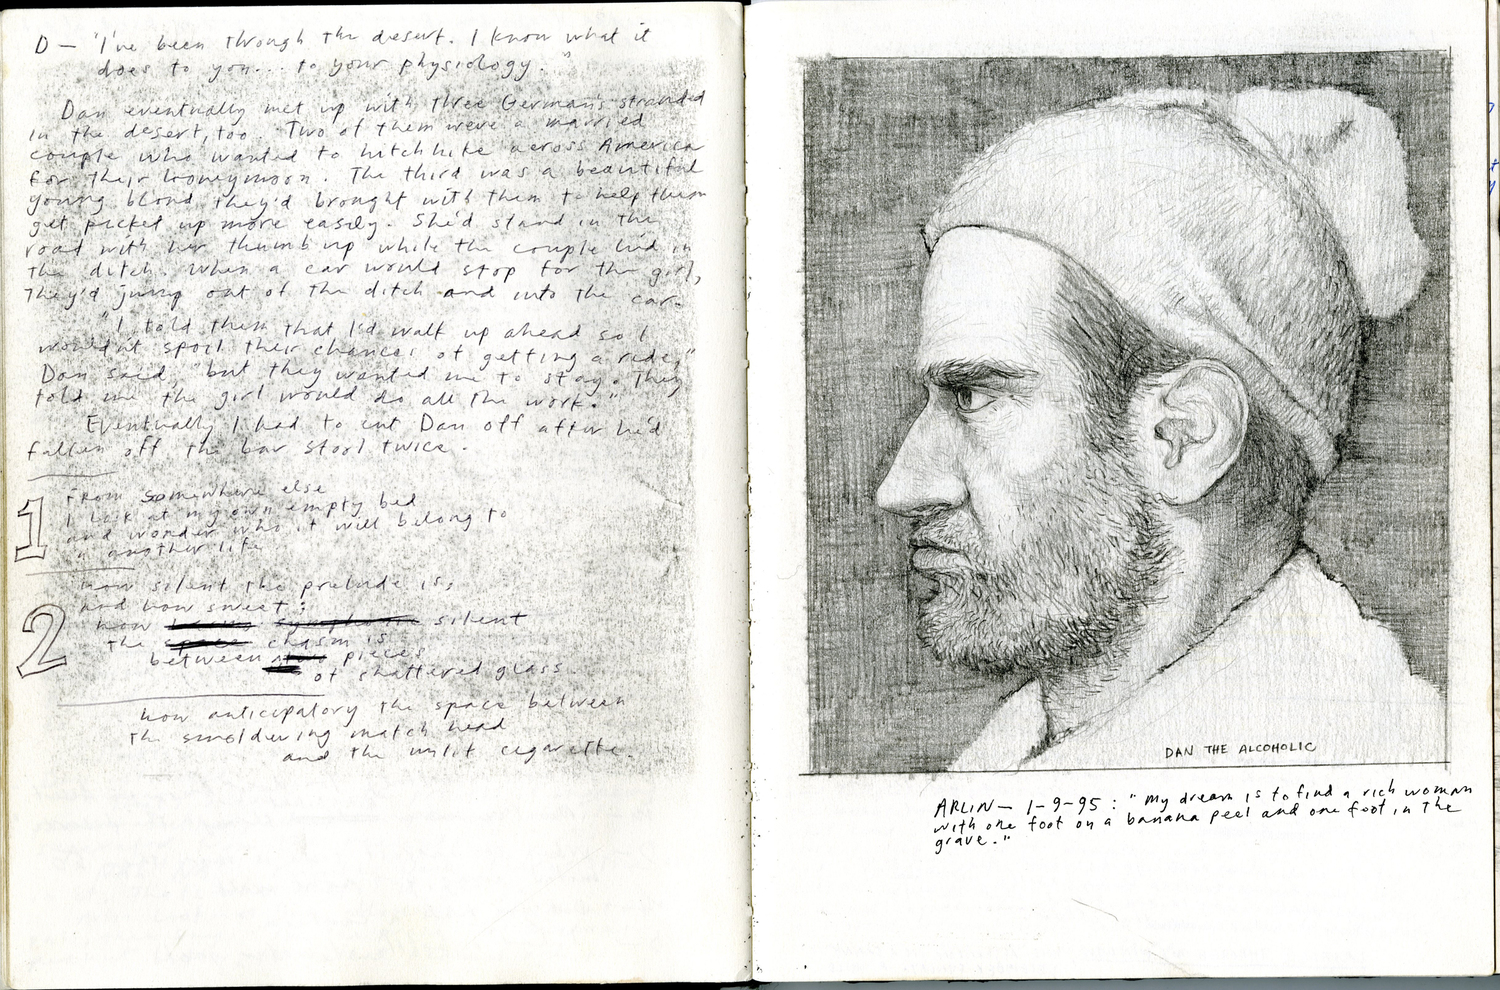 D — "I've been through the desert. I know what it
does to you... to your physiology."
Dan eventually met up with three Germans stranded
in the desert, too. Two of them were a married
couple who wanted to hitchhike across America
for their honeymoon. The third was a beautiful
young blond they'd brought with them to help them
get picked up more easily. She'd stand in the
road with her thumb up while the couple hid in
the ditch. When a car would stop for the girl,
they'd jump out of the ditch and into the car.
"I told them that I'd walk up ahead so I
wouldn't spoil their chances of getting a ride,"
Dan said, "but they wanted me to stay. They
told me the girl would do all the work."
Eventually I had to cut Dan off after he'd
fallen off the bar stool twice.
1
From somewhere else
I look at my own empty bed
and wonder who it will belong to
in another life
2
how silent the prelude is,
and how sweet:
how silent
the chasm is
between pieces
of shattered glass.
how anticipatory the space between
the smoldering match head
and the unlit cigarette.
DAN THE ALCOHOLIC
ARLIN — 1-9-95 : "My dream is to find a rich woman
with one foot on a banana peel and one foot in the
grave."